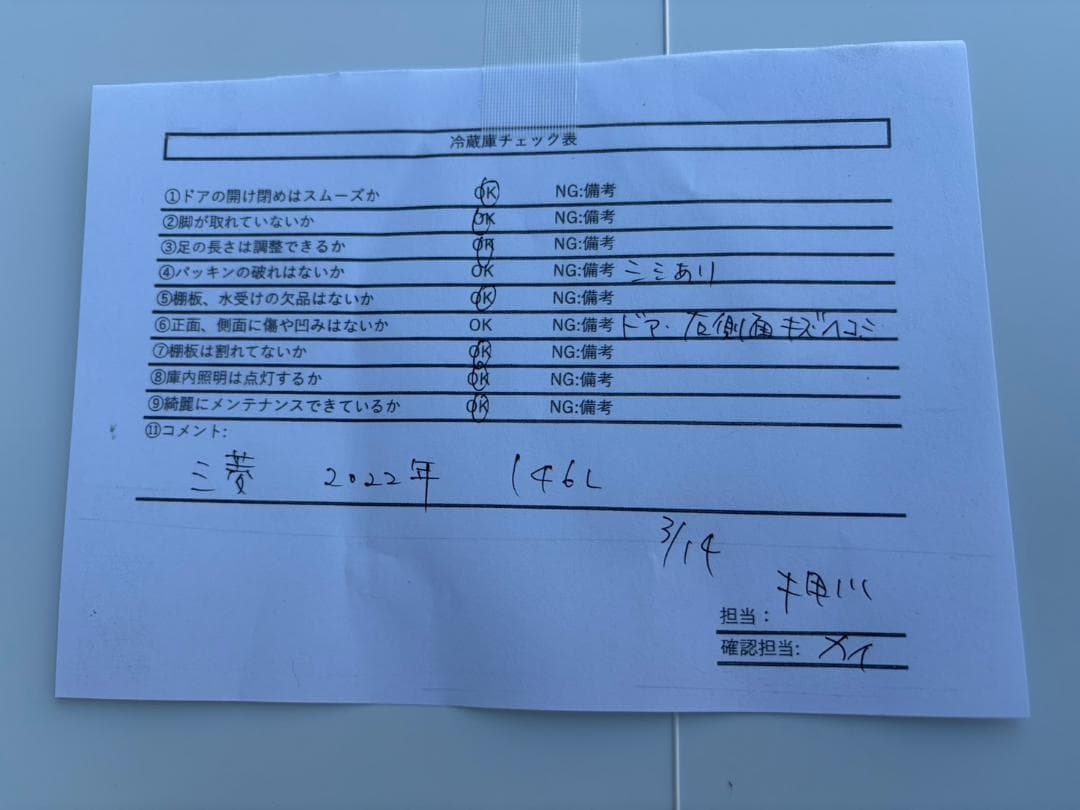 冷蔵庫チェック表
①ドアの開け閉めはスムーズか OK NG:備考
②脚が取れていないか OK NG:備考
③足の長さは調整できるか OK NG:備考
④パッキンの破れはないか OK NG:備考 シミあり
⑤棚板、水受けの欠品はないか OK NG:備考
⑥正面、側面に傷や凹みはないか OK NG:備考 ドア・左側面キズヘコミ
⑦棚板は割れてないか OK NG:備考
⑧庫内照明は点灯するか OK NG:備考
⑨綺麗にメンテナンスできているか OK NG:備考
⑪コメント:
三菱 2022年 146L
3/14
担当:
確認担当: